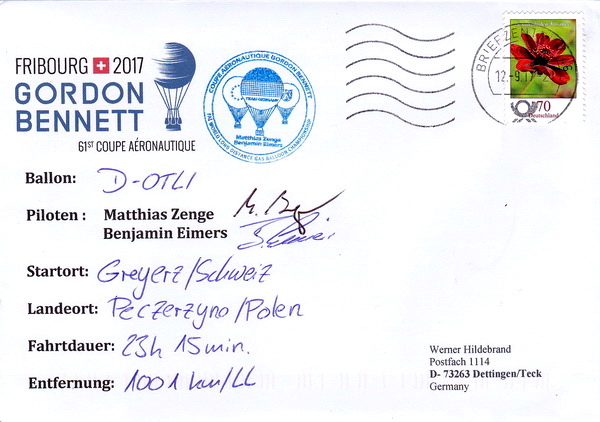 FRIBOURG 2017
GORDON
BENNETT
61ST COUPE AÉRONAUTIQUE
COUPE AÉRONAUTIQUE GORDON BENNETT
TEAM GERMANY
Matthias Zenge
Benjamin Eimers
THE WORLD LONG DISTANCE GAS BALLOON CHAMPIONSHIP
BRIEFZEN
12.-9.17
70
Deutschland
Ballon: D-OTLI
Piloten : Matthias Zenge
Benjamin Eimers
Startort: Greyerz/Schweiz
Landeort: Peczerzyno/Polen
Fahrtdauer: 23h 15min.
Entfernung: 1001 km/LL
Werner Hildebrand
Postfach 1114
D- 73263 Dettingen/Teck
Germany